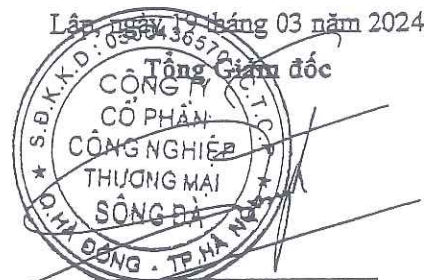 Lập, ngày 19 tháng 03 năm 2024
Tổng Giám đốc
S.Đ.K.K.D: 0500436570 C.T.C.P
CÔNG TY
CỔ PHẦN
CÔNG NGHIỆP
THƯƠNG MẠI
SÔNG ĐÀ
★ Q.HÀ ĐÔNG - TP.HÀ NỘI ★